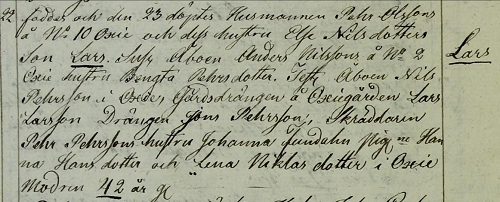 22 föddes och den 23 döptes Husmannen Pehr Olssons
å No 10 Oxie och dess hustru Else Nilsdotters
Son Lars. Susc Åboen Anders Nilssons å No 2
Oxie hustru Bengta Pehrsdotter. Test Åboen Nils
Pehrsson i Oxie, Gårdsdrängen å Oxiegården Lars
Larsson Drängen Jöns Pehrsson, Skräddaren
Pehr Pehrssons hustru Johanna Lundahn Pigne Han
na Hansdotter och Lena Niklasdotter i Oxie
Modren 42 år g
Lars